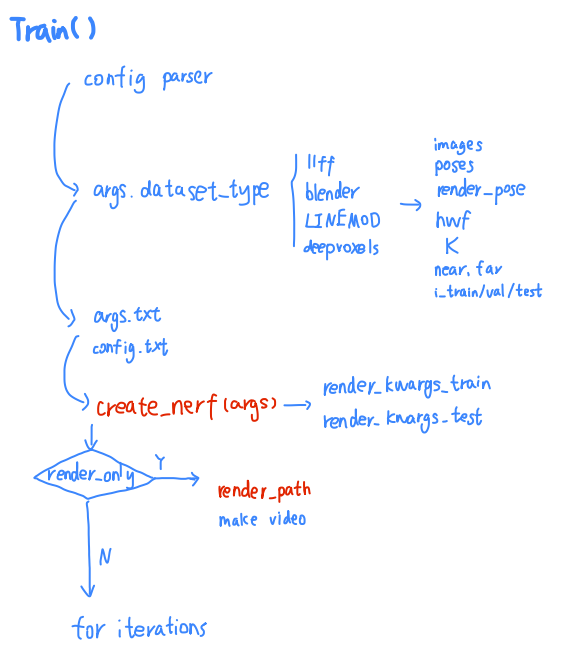 Train()
config parser
args.dataset_type
llff
blender
LINEMOD
deepvoxels
images
poses
render_pose
hwf
K
near, far
i_train/val/test
args.txt
config.txt
create_nerf(args)
render_kwargs_train
render_kwargs_test
render_only
Y
render_path
make video
N
for iterations